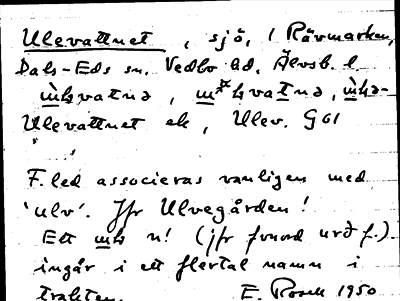 Ulevattnet, sjö, i Rävmarken,
Dals-Eds sn. Vedbo hd. Älvsb. l.
Ulevattnet ek, Ulev. G61
F. led associeras vanligen med
'ulv'. Jfr Ulvegården!
Ett n! (jfr fvnord urð f.).
ingår i ett flertal namn i
trakten. E. Rosell 1950